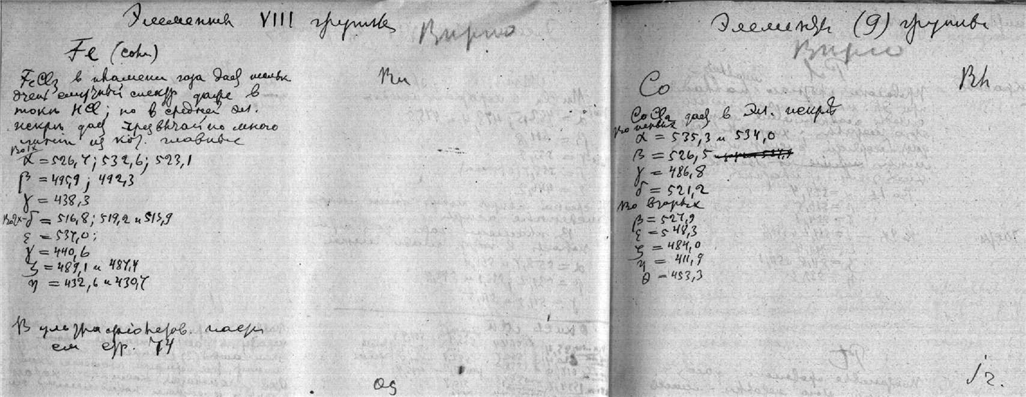 Элементы VIII группы
Верно
Fe (соли)
Ru
FeCl3 в пламени газа даёт
очень спектр даже в
токе HCl; но в средней эл.
искры даёт чрезвычайно много
линий из кот. главные
α = 526,7; 532,6; 523,1
β = 495,9; 492,3
γ = 438,3
δ = 516,8; 519,2 и 513,9
ε = 537,0;
γ = 440,6
ζ = 489,1 и 487,4
η = 432,6 и 430,7
В ультрафиолетов. части
см стр. 74
Os
Элементы (9) группы
Верно
Co
Rh
CoCl2 даёт в эл. искре
α = 535,3 и 534,0
β = 526,5
γ = 486,8
δ = 521,2
Во вторых
β = 527,9
ε = 548,3
ζ = 484,0
η = 411,9
θ = 453,3
Ir.